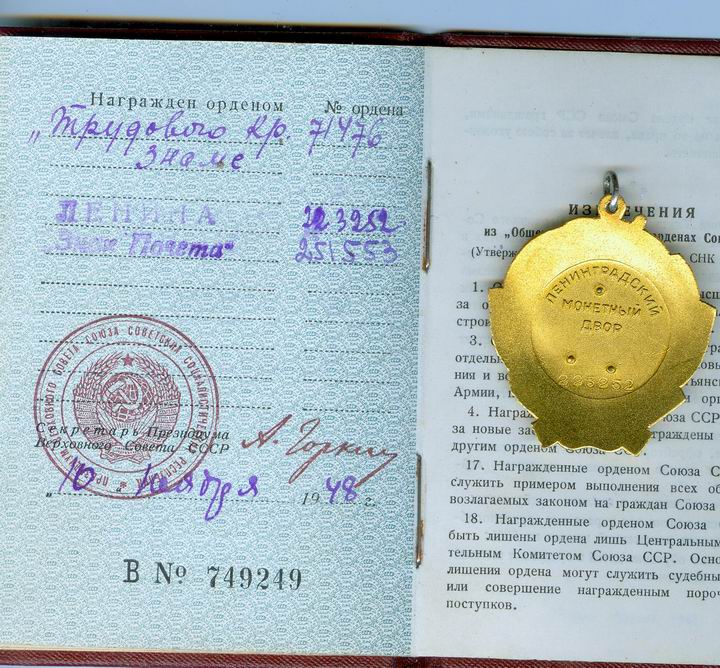 Награжден орденом № ордена
„Трудового Кр. 71476
Знаме
ЛЕНИНА 223252
„Знак Почета“ 251553
СОЮЗА СОВЕТСКИХ СОЦИАЛИСТИЧЕСКИХ
Секретарь Президиума
Верховного Совета СССР
А. Горкин
„10 “ ноября 1948 г.
В № 749249
ИЗ ЧЕНИЯ
из „Общ орденах Сою
(Утверж СНК
ЛЕНИНГРАДСКИЙ
МОНЕТНЫЙ
ДВОР
1.
за о
строи
3.
отдель
ния и во
Армии,
4. Награ
за новые за граждены
другим орденом Союза
17. Награжденные орденом Союза С
служить примером выполнения всех об
возлагаемых законом на граждан Союза
18. Награжденные орденом Союза
быть лишены ордена лишь Центральным
тельным Комитетом Союза ССР. Осно
лишения ордена могут служить судебны
или совершение награжденным пороч
поступков.